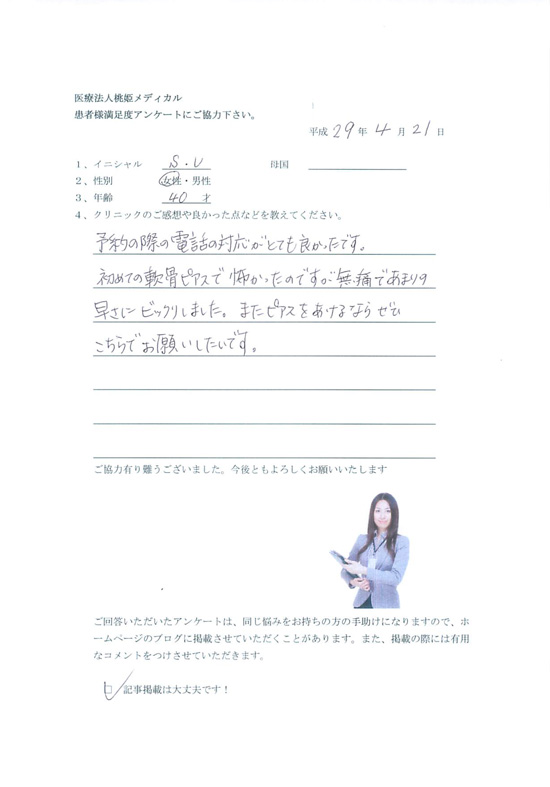 医療法人桃姫メディカル
患者様満足度アンケートにご協力下さい。
平成 29 年 4 月 21 日
1、イニシャル S・U 母国
2、性別 女性・男性
3、年齢 40 才
4、クリニックのご感想や良かった点などを教えてください。
予約の際の電話の対応がとても良かったです。
初めての軟骨ピアスで怖かったのですが無痛であまりの
早さにビックリしました。またピアスをあけるならぜひ
こちらでお願いしたいです。
ご協力有り難うございました。今後ともよろしくお願いいたします
ご回答いただいたアンケートは、同じ悩みをお持ちの方の手助けになりますので、ホ
ームページのブログに掲載させていただくことがあります。また、掲載の際には有用
なコメントをつけさせていただきます。
□ 記事掲載は大丈夫です！